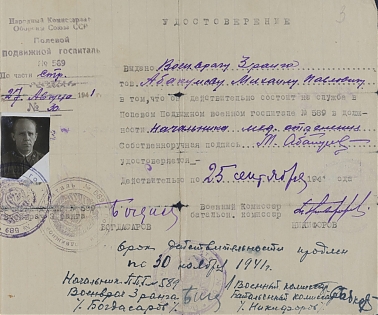 Народный Комиссариат
Обороны Союза ССР
Полевой
Подвижной госпиталь
№ 589
По части стр.
27 Августа 1941
№ 20
3
УДОСТОВЕРЕНИЕ
Выдано Военврачу 3 ранга
тов. Абакумову Михаилу Павловичу
в том, что он действительно состоит на службе в
Полевом Подвижном военном госпитале № 589 в долж-
ности начальника мед. отделения
Собственноручная подпись М. Абакумов
удостоверяется
Действительно по 25 сентября 1941
Военный Комиссар
БОГДАСАРОВ
НИКИФОРОВ
Срок действительности продлен
по 30 ноября 1941 г.
Начальник ППГ № 589
Военврач 3 ранга
/. Богдасаров /.
Военный комиссар
Батальонный комиссар
/. Никифоров /.